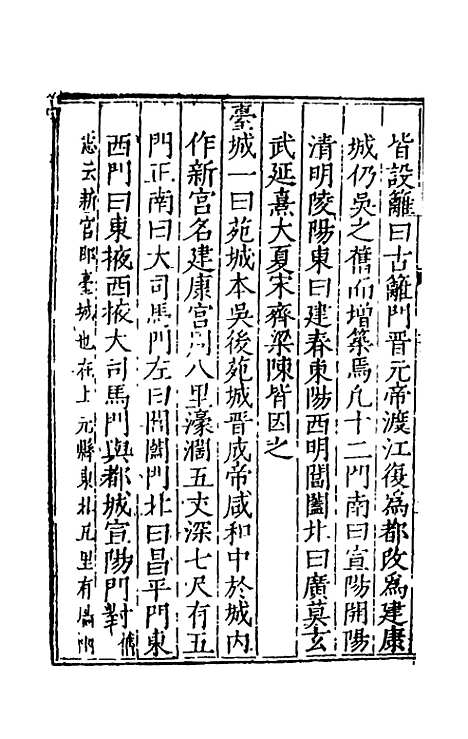 皆設籬曰古籬門晉元帝渡江復為都改為建康
城仍吳之舊而增築焉凡十二門南曰宣陽開陽
清明陵陽東曰建春東陽西明閶闔北曰廣莫玄
武延熹大夏宋齊梁陳皆因之
臺城一曰苑城本吳後苑城晉成帝咸和中於城內
作新宮名建康宮周八里濠濶五丈深七尺有五
門正南曰大司馬門左曰閶闔門北曰昌平門東
西門曰東掖西掖大司馬門與都城宣陽門對
云新宮即臺城也在上元縣東北五里有